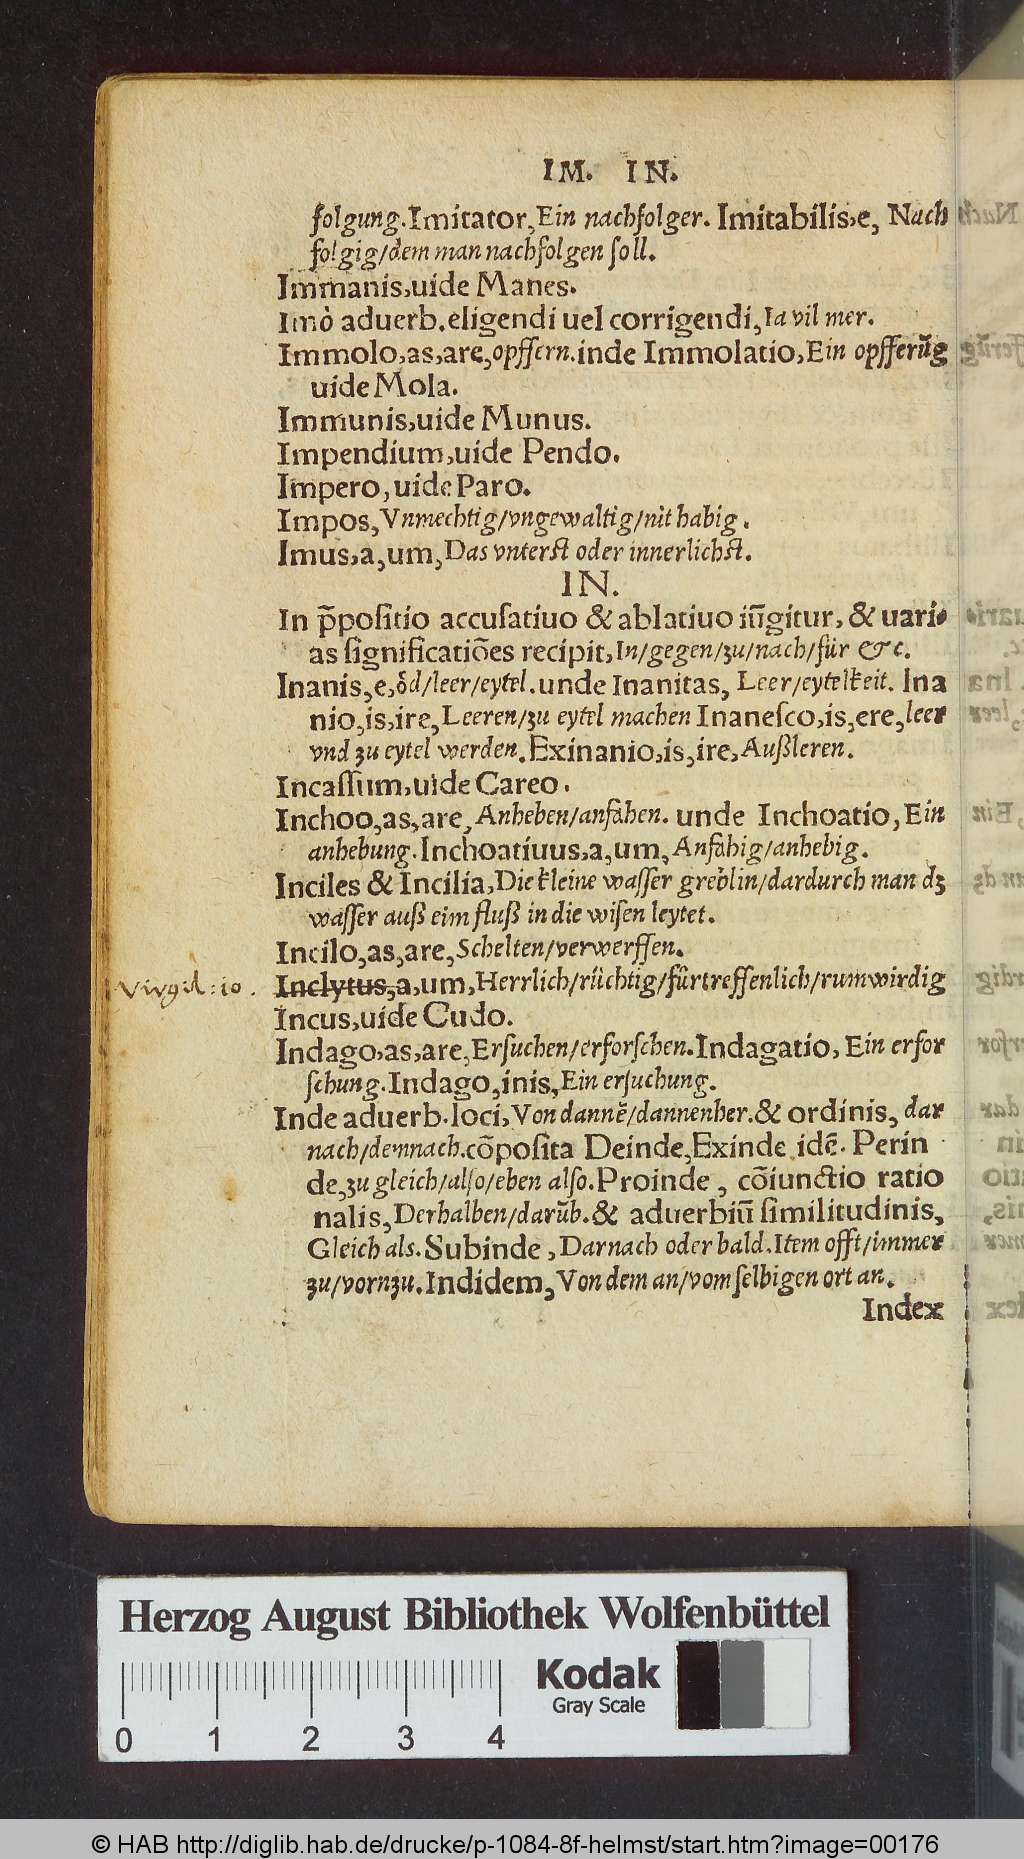 IM. IN.
folgung. Imitator, Ein nachfolger. Imitabilis,e, Nach
folgig/dem man nachfolgen soll.
Immanis,uide Manes.
Imò aduerb.eligendi uel corrigendi, Ia vil mer.
Immolo,as,are, opffern. inde Immolatio, Ein opfferūg
uide Mola.
Immunis,uide Munus.
Impendium,uide Pendo.
Impero, uide Paro.
Impos, Vnmechtig/vngewaltig/nit habig.
Imus,a,um, Das vnterst oder innerlichst.
IN.
In p̄positio accusatiuo & ablatiuo iūgitur, & uari-
as significatiōes recipit, In/gegen/zu/nach/für &c.
Inanis,e, öd/leer/eytel. unde Inanitas, Leer/eytelkeit. Ina
nio,is,ire, Leeren/zu eytel machen Inanesco,is,ere, leer
vnd zu eytel werden. Exinanio,is,ire, Außleren.
Incassum,uide Careo.
Inchoo,as,are, Anheben/anfahen. unde Inchoatio, Ein
anhebung. Inchoatiuus,a,um, Anfahig/anhebig.
Inciles & Incilia, Die kleine wasser greblin/dardurch man dz
wasser auß eim fluß in die wisen leytet.
Incilo,as,are, Schelten/verwerffen.
Virgil: 10.
Inclytus,a,um, Herrlich/rüchtig/fürtreffenlich/rumwirdig
Incus,uide Cudo.
Indago,as,are, Ersuchen/erforschen. Indagatio, Ein erfor
schung. Indago,inis, Ein ersuchung.
Inde aduerb.loci, Von dannē/dannenher. & ordinis, dar
nach/demnach. cōposita Deinde, Exinde idē. Perin
de, zu gleich/also/eben also. Proinde, cōiunctio ratio
nalis, Derhalben/darūb. & aduerbiū similitudinis,
Gleich als. Subinde, Darnach oder bald. Item offt/immer
zu/vornzu. Indidem, Von dem an/vom selbigen ort an.
Index
Herzog August Bibliothek Wolfenbüttel
Kodak
Gray Scale
0 1 2 3 4
© HAB http://diglib.hab.de/drucke/p-1084-8f-helmst/start.htm?image=00176